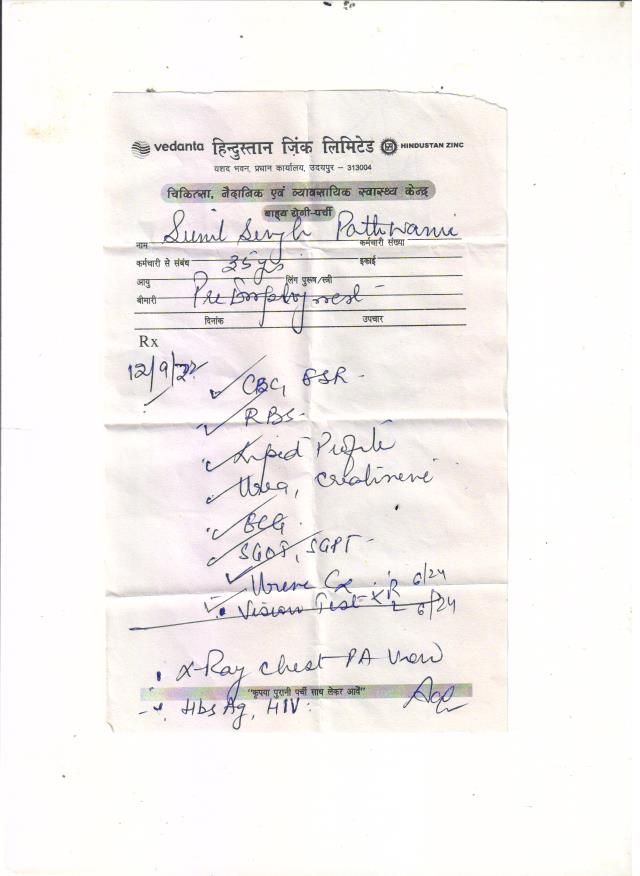 vedanta हिन्दुस्तान ज़िंक लिमिटेड HINDUSTAN ZINC
यशद भवन, प्रधान कार्यालय, उदयपुर – 313004
चिकित्सा, नैदानिक एवं व्यावसायिक स्वास्थ्य केन्द्र
बाह्य रोगी-पर्ची
नाम Sunil Singh कर्मचारी संख्या
कर्मचारी से संबंध 35 इकाई
आयु लिंग पुरूष/स्त्री
बीमारी Pre Employment -
दिनांक उपचार
Rx
12/9/22 CBC, ESR -
RBS -
Lipid Profile
Urea, Creatinine
ECG
SGOT, SGPT -
Urine R 6/24
Vision Test L 6/24
X-Ray chest PA View
"कृपया पुरानी पर्ची साथ लेकर आवें"
HbsAg, HIV